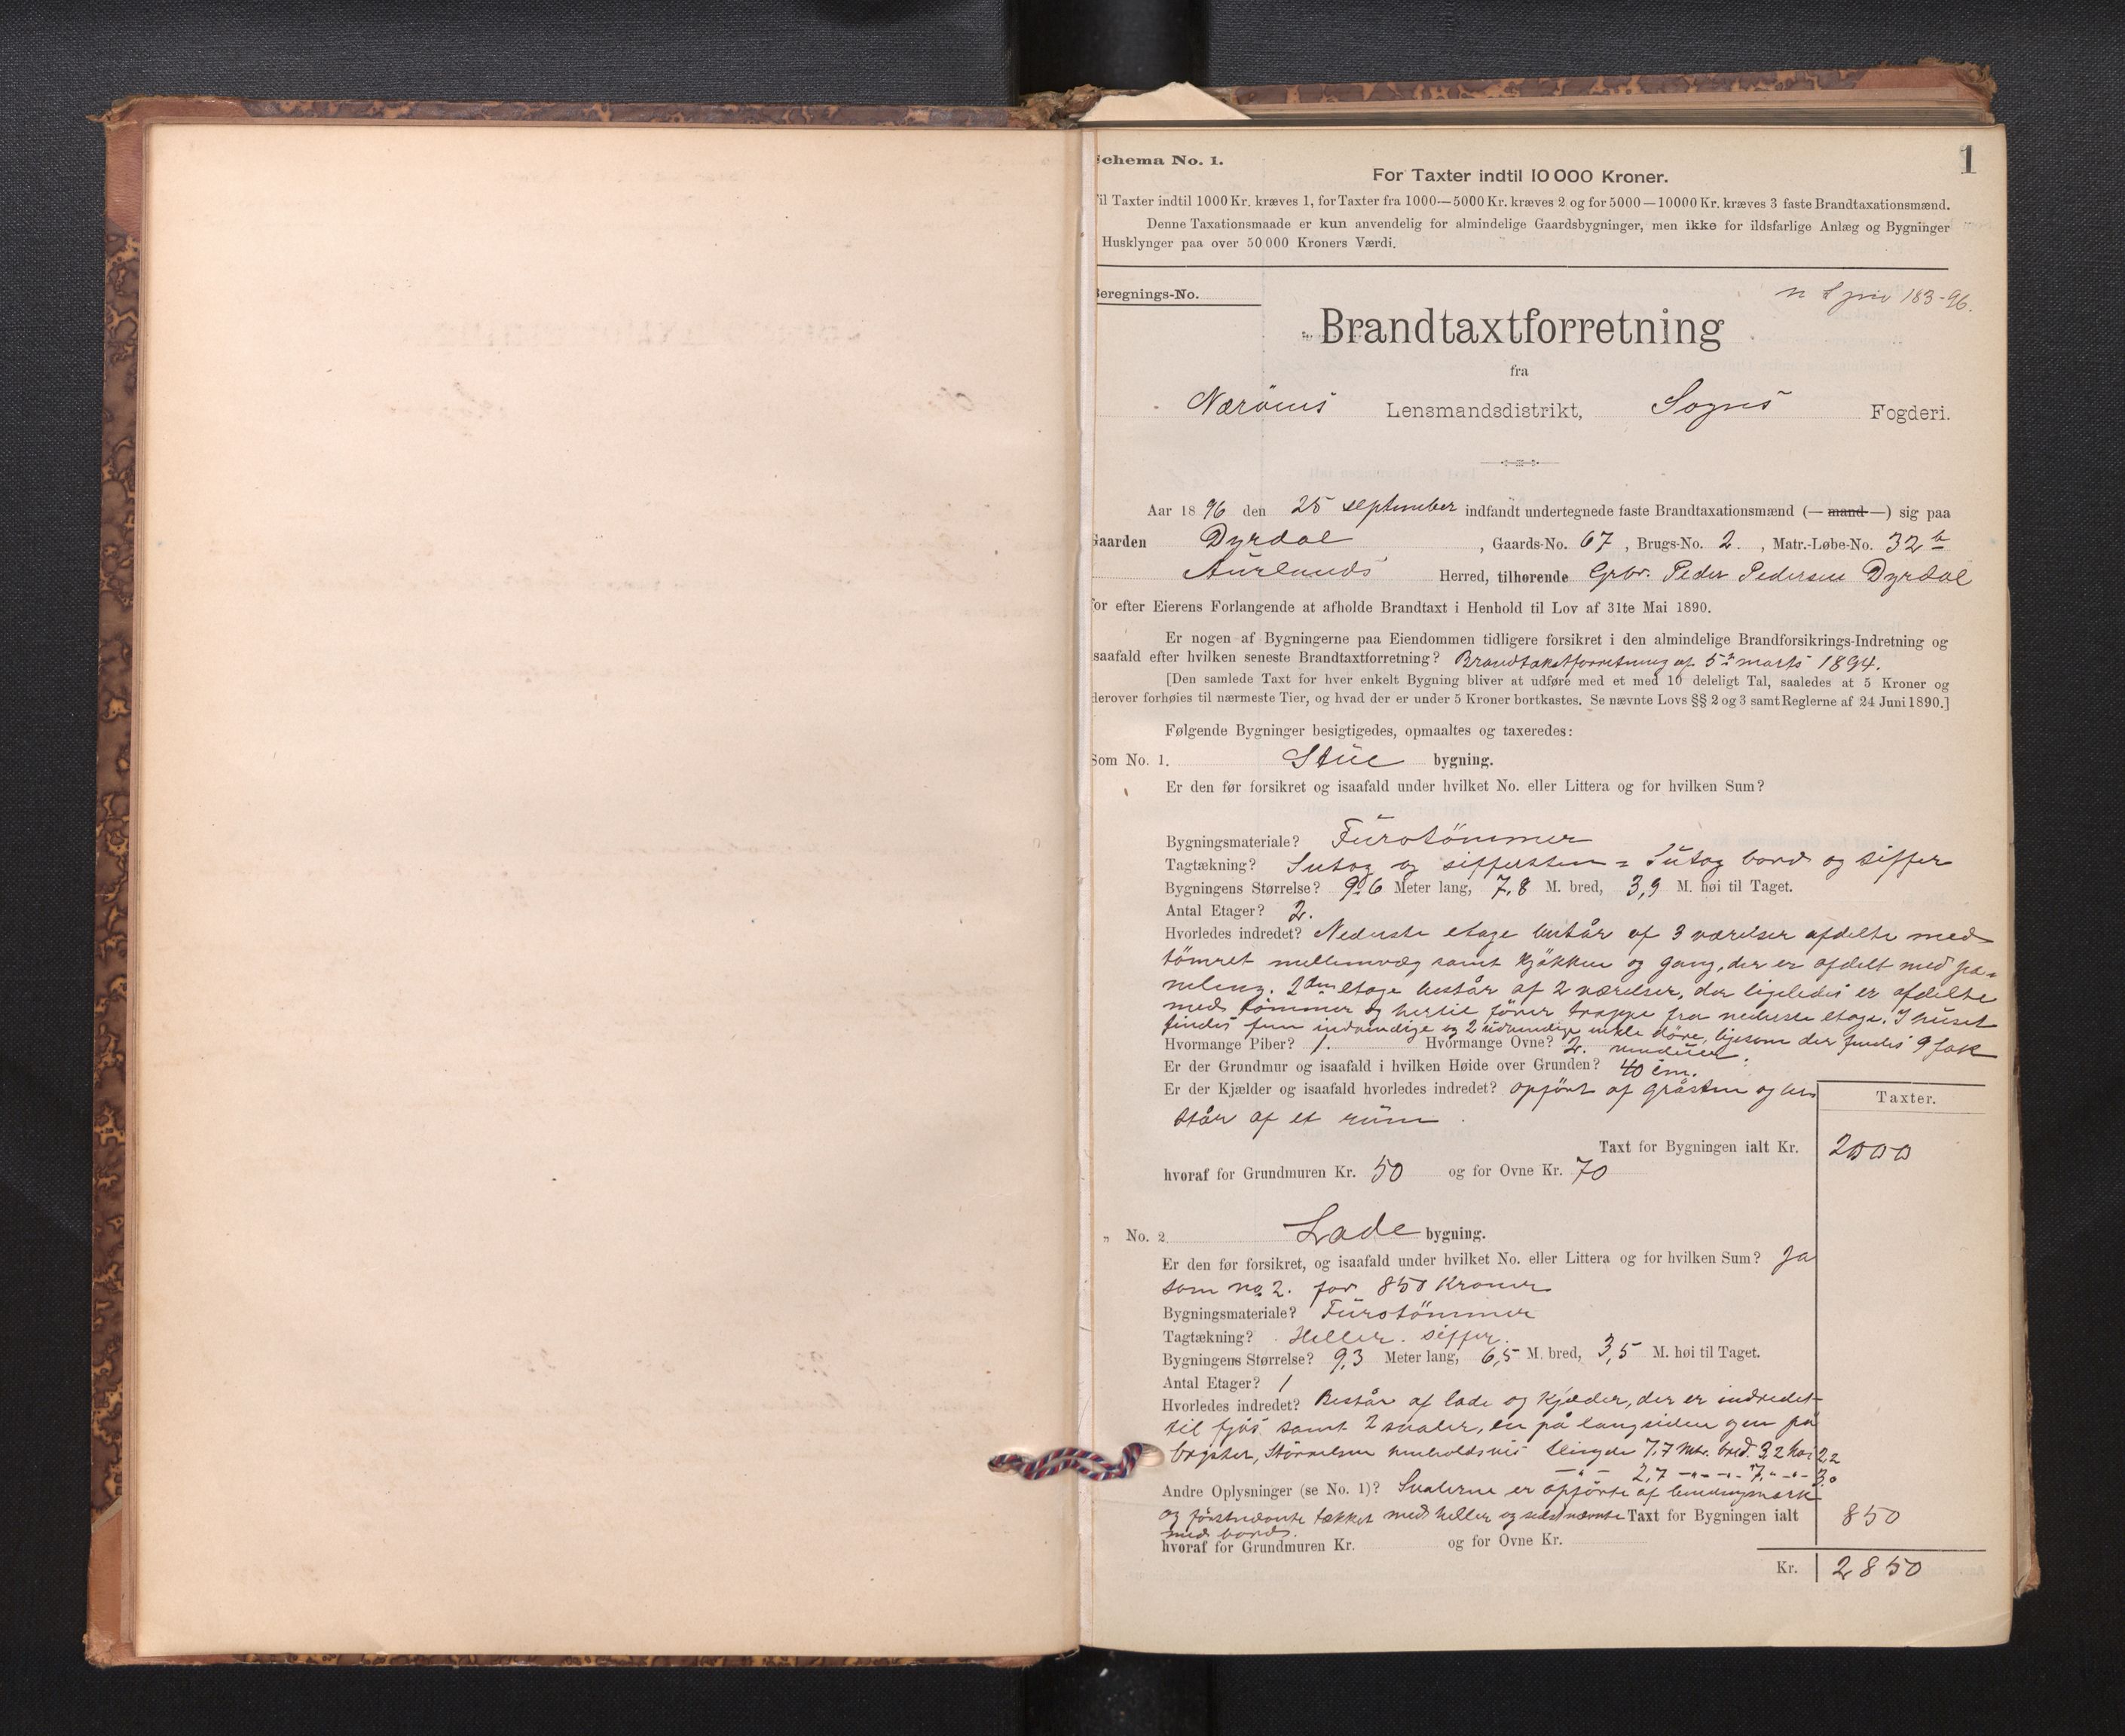 Schema No. 1.
1
For Taxter indtil 10 000 Kroner.
Til Taxter indtil 1000 Kr. kræves 1, for Taxter fra 1000—5000 Kr. kræves 2 og for 5000—10000 Kr. kræves 3 faste Brandtaxationsmænd.
Denne Taxationsmaade er kun anvendelig for almindelige Gaardsbygninger, men ikke for ildsfarlige Anlæg og Bygninger
Husklynger paa over 50 000 Kroners Værdi.
Beregnings-No.
183-96.
Brandtaxtforretning
fra
Nærøens Lensmandsdistrikt, Sogns Fogderi.
Aar 1896 den 25 september indfandt undertegnede faste Brandtaxationsmænd (— mand —) sig paa
Gaarden Dyrdal, Gaards-No. 67, Brugs-No. 2., Matr.-Løbe-No. 32 b
Aurlands Herred, tilhørende Grbr. Peder Pedersen Dyrdal
for efter Eierens Forlangende at afholde Brandtaxt i Henhold til Lov af 31te Mai 1890.
Er nogen af Bygningerne paa Eiendommen tidligere forsikret i den almindelige Brandforsikrings-Indretning og
isaafald efter hvilken seneste Brandtaxtforretning? Brandtakstforretning af 5te marts 1894.
[Den samlede Taxt for hver enkelt Bygning bliver at udføre med et med 10 deleligt Tal, saaledes at 5 Kroner og
derover forhøies til nærmeste Tier, og hvad der er under 5 Kroner bortkastes. Se nævnte Lovs §§ 2 og 3 samt Reglerne af 24 Juni 1890.]
Følgende Bygninger besigtigedes, opmaaltes og taxeredes:
Som No. 1. Stue bygning.
Er den før forsikret og isaafald under hvilket No. eller Littera og for hvilken Sum?
Bygningsmateriale? Furotömmer
Tagtækning? Sutag og siffersten = Sutag bord og siffer
Bygningens Størrelse? 9,6 Meter lang, 7,8 M. bred, 3,9 M. høi til Taget.
Antal Etager? 2.
Hvorledes indredet? Nederste etage består af 3 værelser afdelte med
tömret mellemvæg samt kjökken og gang, der er afdelt med pa-
neling. 2den etage består af 2 værelser, der ligeledes er afdelte
med tömmer og hertil förer trappe fra nederste etage. I huset
findes fem indvendige og 2 udvendige enkle döre, ligesom der findes 9 fak
Hvormange Piber? 1. Hvormange Ovne? 2. vinduer
Er der Grundmur og isaafald i hvilken Høide over Grunden? 40 cm.
Er der Kjælder og isaafald hvorledes indredet? opfört af gråsten og be-
står af et rum
Taxter.
Taxt for Bygningen ialt Kr. 2000
hvoraf for Grundmuren Kr. 50 og for Ovne Kr. 70
„ No. 2 Lade bygning.
Er den før forsikret, og isaafald under hvilket No. eller Littera og for hvilken Sum? Ja
som No 2. for 850 Kroner
Bygningsmateriale? Furotömmer
Tagtækning? Heller. siffer.
Bygningens Størrelse? 9,3 Meter lang, 6,5 M. bred, 3,5 M. høi til Taget.
Antal Etager? 1
Hvorledes indredet? Består af lade og kjælder, der er indredet
til fjös samt 2 svaler, en på langsiden og en på
Størrelsen henholdsvis 7,7 mtr. bred. 3,2 høi 2,2
2,7 7, 3,0
Andre Oplysninger (se No. 1)? Svalerne er opförte af bindingsverk
og förstnævnte tækket med heller og sidstnævnte Taxt for Bygningen ialt 850
med bord.
hvoraf for Grundmuren Kr. og for Ovne Kr.
Kr. 2850